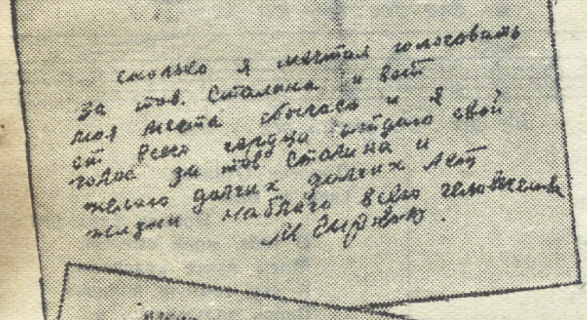 сколько я мечтал голосовать
за тов. Сталина и вот
моя мечта сбылась и я
от всего сердца отдаю свой
голос за тов Сталина и
желаю долгих долгих лет
жизни на благо всего человечества
М